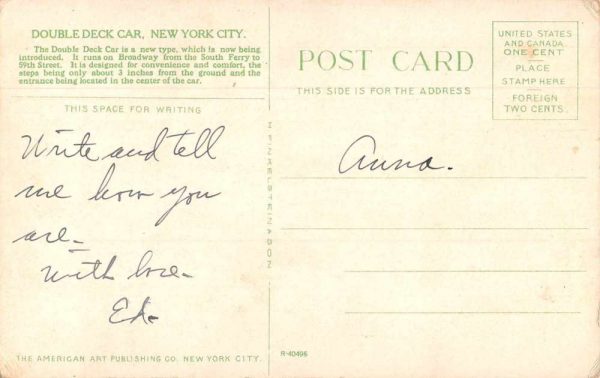 DOUBLE DECK CAR, NEW YORK CITY.
The Double Deck Car is a new type, which is now being
introduced. It runs on Broadway from the South Ferry to
59th Street. It is designed for convenience and comfort, the
steps being only about 3 inches from the ground and the
entrance being located in the center of the car.
THIS SPACE FOR WRITING
Write and tell
me how you
are-
with love-
THE AMERICAN ART PUBLISHING CO. NEW YORK CITY.
POST CARD
THIS SIDE IS FOR THE ADDRESS
UNITED STATES
AND CANADA
ONE CENT
PLACE
STAMP HERE
FOREIGN
TWO CENTS
Anna.
R-40496